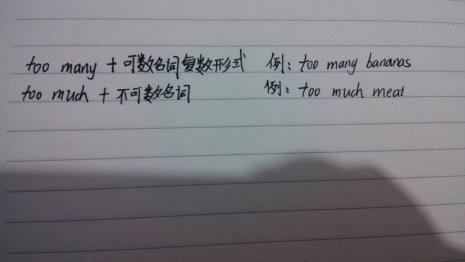 too many + 可数名词复数形式 例: too many bananas
too much + 不可数名词 例: too much meat